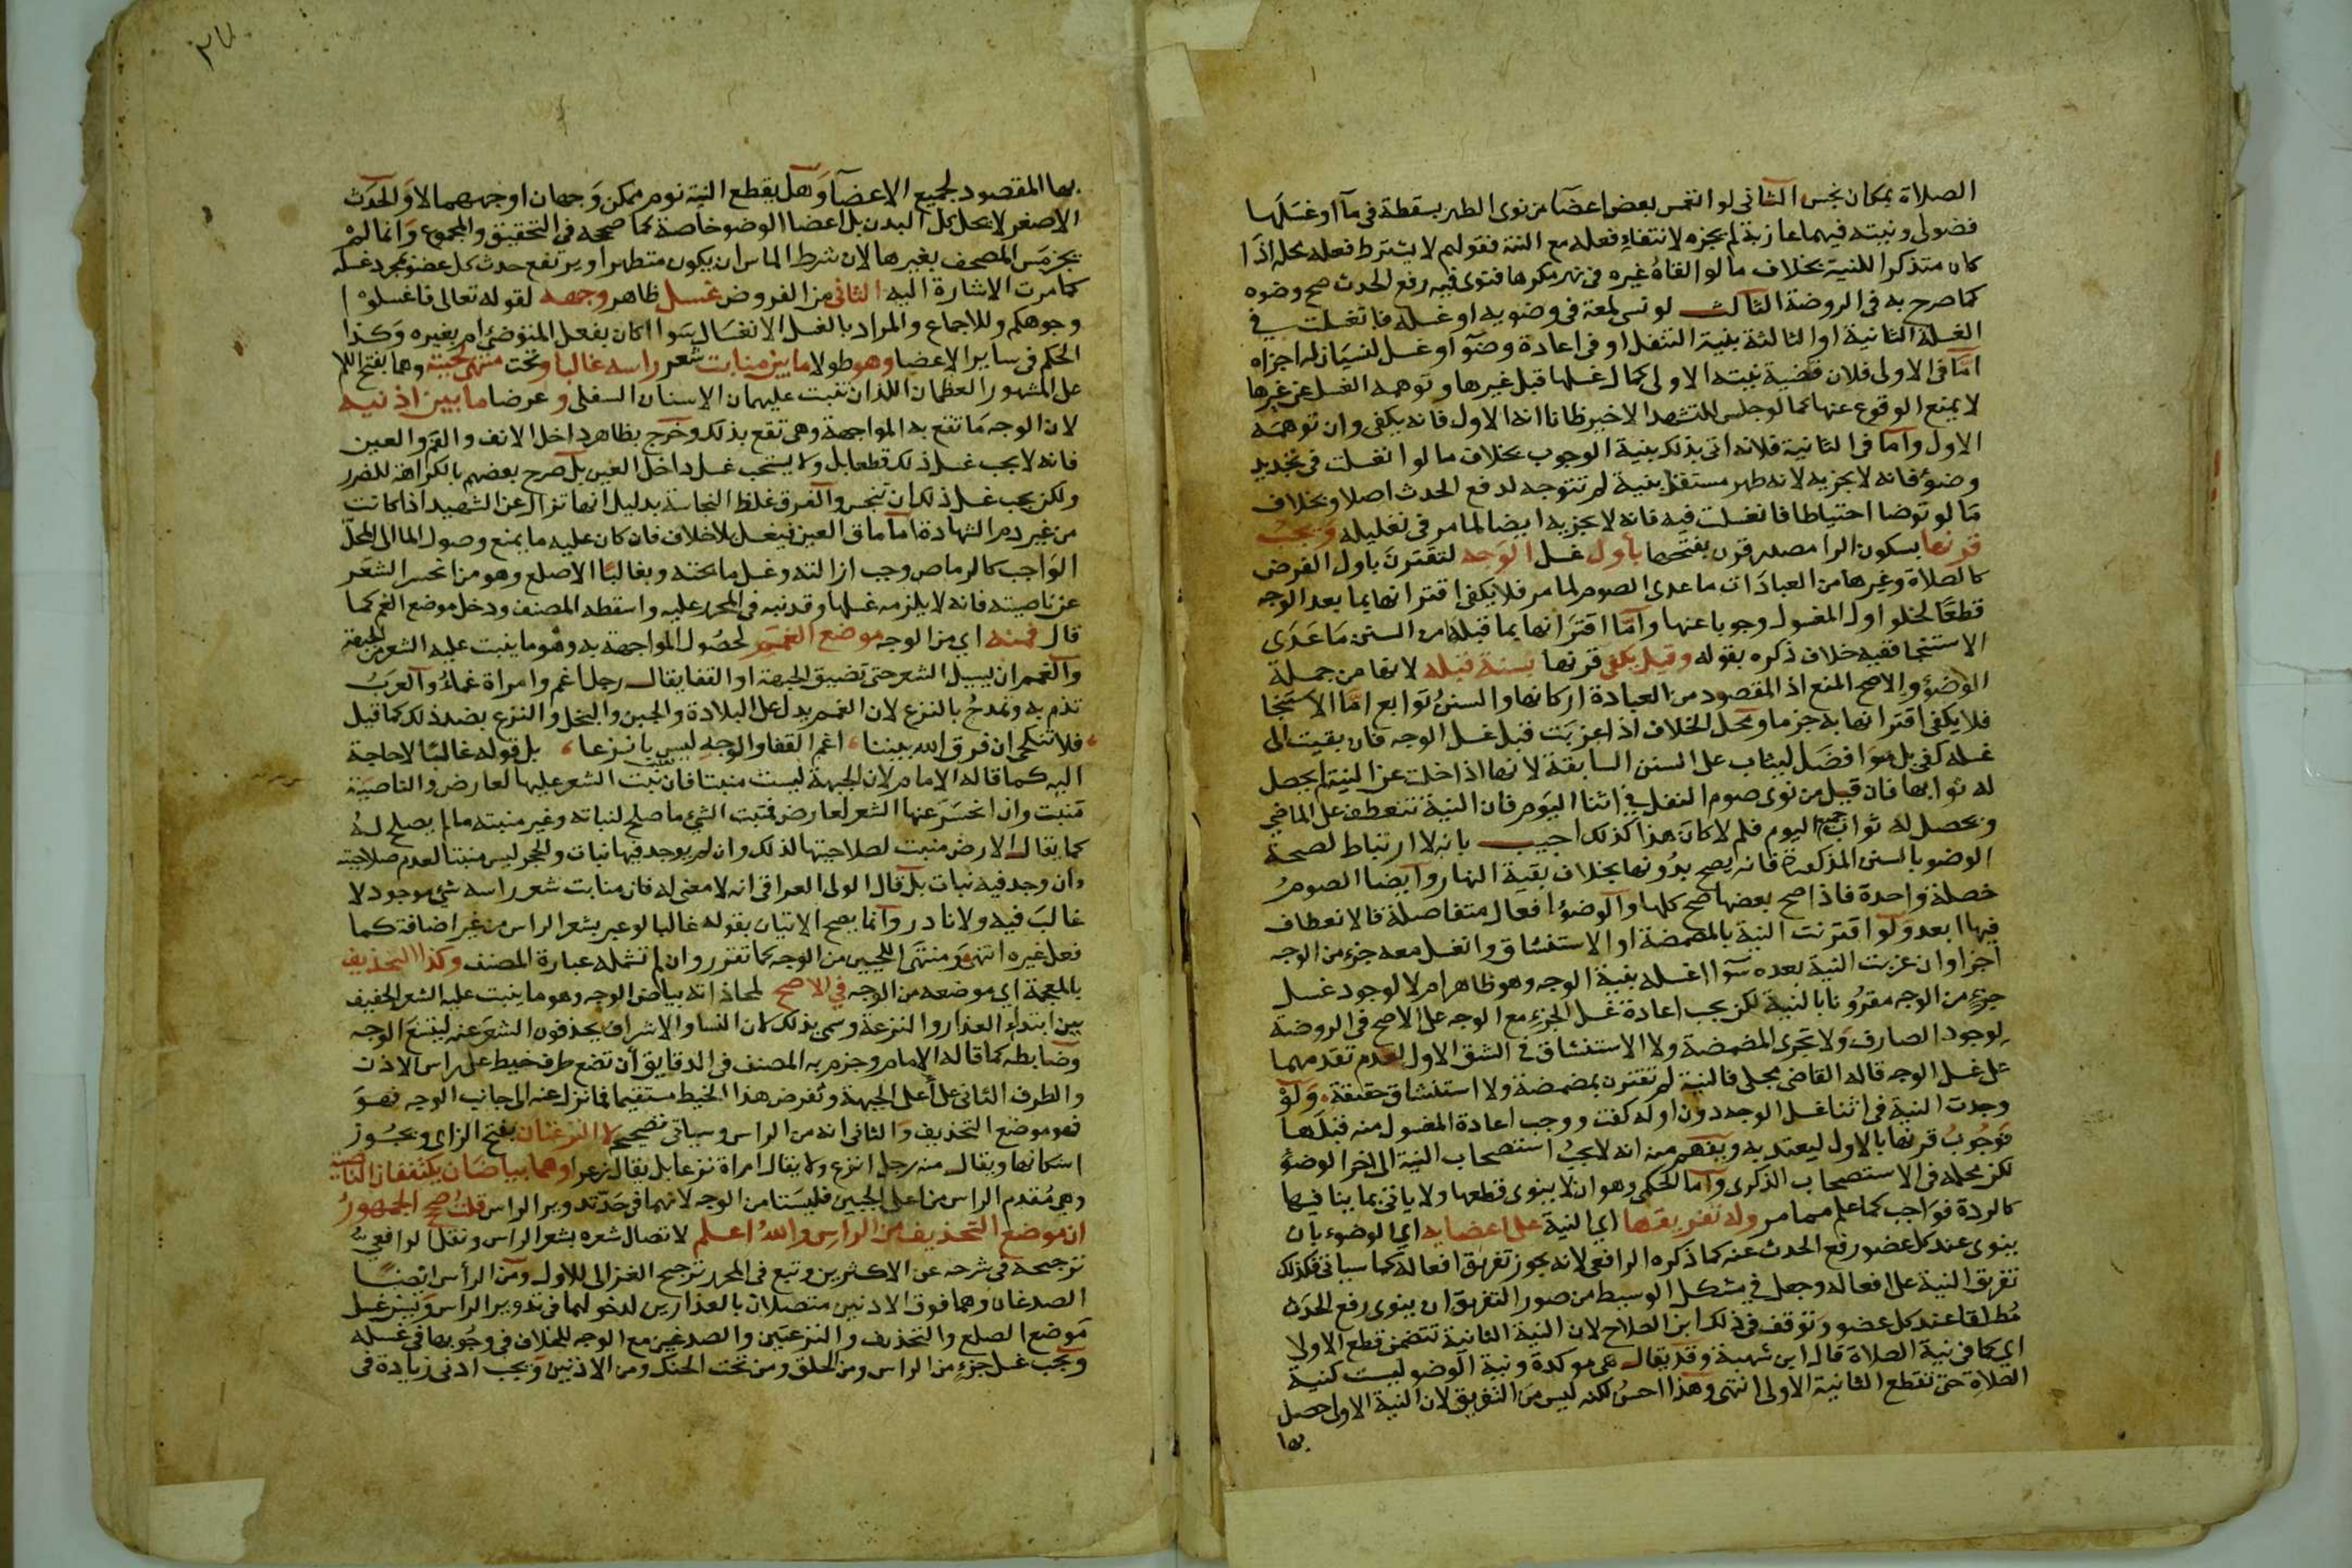 الصلاة بمكان نجس الثاني لو انغمس بعض اعضآ من نوى الطهر بسقطة في مآ او غسلها
فضولي ونيته فيهما عازبة لم يجزه لانتفاء فعله مع النية فقولهم لا يشترط فعله محله اذا
كان متذكرا للنية بخلاف ما لو القاه غيره في نهر مكرها فنوى فيه رفع الحدث صح وضوه
كما صرح به في الروضة الثالث لو نسي لمعة في وضويه او غسله فانغسلت في
الغسلة الثانية او الثالثة بنية التنفل او في اعادة وضوء او غسل لنسيان له اجزاه
اما في الاولى فلان قضية نيته الاولى كمال غسلها قبل غيرها وتوهمه الغسل عن غيرها
لا يمنع الوقوع عنها كما لو جلس للتشهد الاخير ظانا انه الاول فانه يكفي وان توهمه
الاول واما في الثانية فلانه اتى بذلك بنية الوجوب بخلاف ما لو انغسلت في تجديد
وضوء فانه لا يجزيه لانه طهر مستقل بنية لم تتوجه لرفع الحدث اصلا وبخلاف
ما لو توضا احتياطا فانغسلت فيه فانه لا يجزيه ايضا لما مر في تعليله ويجب
قرنها بسكون الرا مصدر قرن بفتحها بأول غسل الوجه لتقترن باول الفرض
كالصلاة وغيرها من العبادات ما عدى الصوم لما مر فلا يكفي اقترانها بما بعد الوجه
قطعا لخلو اول المغسول وجوبا عنها واما اقترانها بما قبله من السنن ما عدى
الاستنجا ففيه خلاف ذكره بقوله وقيل يكفي قرنها بسنة قبله لانها من جملة
الوضوء والاصح المنع اذ المقصود من العبادة اركانها والسنن توابع اما الاستنجا
فلا يكفي اقترانها به جزما ومحل الخلاف اذا عزبت قبل غسل الوجه فان بقيت الى
غسله كفى بل هو افضل ليثاب على السنن السابقة لانها اذا خلت عن النية لم يحصل
له ثوابها فان قيل من نوى صوم النفل في اثنا اليوم فان النية تنعطف على الماضي
ويحصل له ثواب جميع اليوم فلم لا كان هذا كذلك اجيب بانه لا ارتباط لصحة
الوضو بالسنن المذكورة فانه يصح بدونها بخلاف بقية النهار وايضا الصوم
خصلة واحدة فاذا صح بعضها صح كلها والوضوء افعال متفاصلة فالانعطاف
فيها ابعد ولو اقترنت النية بالمضمضة او الاستنشاق وانغسل معه جزء من الوجه
اجزا وان عزبت النية بعده سوا اغسله بنية الوجه وهو ظاهر ام لا لوجود غسل
جزء من الوجه مقرونا بالنية لكن يجب اعادة غسل الجزء مع الوجه على الاصح في الروضة
لوجود الصارف ولا تجزى المضمضة ولا الاستنشاق في الشق الاول لعدم تقدمهما
على غسل الوجه قاله القاضي مجلي فالنية لم تقترن بمضمضة ولا استنشاق حقيقة ولو
وجدت النية في اثنا غسل الوجه دون اوله كفت ووجب اعادة المغسول منه قبلها
فوجوب قرنها بالاول ليعتد به ويفهم من انه لا يجب استصحاب النية الى اخر الوضوء
لكن محله في الاستصحاب الذكرى واما الحكمى وهو ان لا ينوى قطعها ولا ياتي بما ينافيها
كالردة فواجب كما علم مما مر وله تفريقها اي النية على اعضايه اي الوضوء بان
ينوى عند كل عضو رفع الحدث عنه كما ذكره الرافعى لانه يجوز تفريق افعاله كما سياتي فكذلك
تفريق النية على افعاله وجعل في مشكل الوسيط من صور التفريق ان ينوى رفع الحدث
مطلقا عند كل عضو وتوقف في ذلك ابن الصلاح لان النية الثانية تتضمن قطع الاولى
اي كما في نية الصلاة قال ابن شهبة وقد يقال هي موكدة ونية الوضو ليست كنية
الصلاة حتى تقطع الثانية الاولى انتهى وهذا احسن لكنه ليس من التفريق لان النية الاولى حصل
بها
٣٧
بها المقصود لجميع الاعضآ وهل يقطع النية نوم ممكن وجهان اوجههما لا والحدث
الاصغر لا يحل كل البدن بل اعضا الوضو خاصة كما صححه في التحقيق والمجموع وانما لم
يجز مس المصحف بغيرها لان شرط الماس ان يكون متطهرا ويرتفع حدث كل عضو بمجرد غسله
كما مرت الاشارة اليه الثاني من الفروض غسل ظاهر وجهه لقوله تعالى فاغسلوا
وجوهكم وللاجماع والمراد بالغسل الانغسال سوا اكان بفعل المتوضئ ام بغيره وكذا
الحكم في ساير الاعضا وهو طولا ما بين منابت شعر راسه غالبا وتحت منتهى لحييه وهما بفتح اللام
على المشهور العظمان اللذان تنبت عليهما الاسنان السفلى وعرضا ما بين اذنيه
لان الوجه ما تقع به المواجهة وهى تقع بذلك وخرج بظاهر داخل الانف والفم والعين
فانه لا يجب غسل ذلك قطعا بل ولا يستحب غسل داخل العين بل صرح بعضهم بالكراهة للضرر
ولكن يجب غسل ذلك ان تنجس والفرق غلظ النجاسة بدليل انها تزال عن الشهيد اذا كانت
من غير دم الشهادة اما ماق العين فيغسل بلا خلاف فان كان عليه ما يمنع وصول الما الى المحل
الواجب كالرماص وجب ازالته وغسل ما تحته وبغالبا الاصلع وهو من انحسر الشعر
عن ناصيته فانه لا يلزمه غسلها وقد نبه في المحرر عليه واسقطه المصنف ودخل موضع الغم كما
قال فمنه اي من الوجه موضع الغمم لحصول المواجهة به وهو ما ينبت عليه الشعر من الجبهة
والغمم ان يسيل الشعر حتى تضيق الجبهة او القفا يقال رجل اغم وامراة غماء والعرب
تذم به وتمدح بالنزع لان الغمم يدل على البلادة والجبن والبخل والنزع بضد ذلك كما قيل
فلا تنكحى ان فرق الله بيننا ، اغم القفا والوجه ليس بانزعا ، بل قوله غالبا لا حاجة
اليه كما قاله الامام لان الجبهة ليست منبتا فان نبت الشعر عليها لعارض والناصية
منبت وان انحسر عنها الشعر لعارض فمنبت الشئ ما صلح لنباته وغير منبته ما لم يصلح له
كما يقال الارض منبت لصلاحيتها لذلك وان لم يوجد فيها نبات والحجر ليس منبتا لعدم صلاحيته
وان وجد فيه نبات بل قال الولى العراقي انه لا معنى له فان منابت شعر راسه شئ موجود لا
غالب فيه ولا نادر وانما يصح الاتيان بقوله غالبا لو عبر بشعر الراس من غير اضافة كما
فعل غيره انتهى ومنتهى اللحيين من الوجه كما تقرر وان لم تشمله عبارة المصنف وكذا التحذيف
بالمعجمة اي موضعه من الوجه في الاصح لمحاذاته بياض الوجه وهو ما ينبت عليه الشعر الخفيف
بين ابتداء العذار والنزعة وسمى بذلك لان النسا والاشراف يحذفون الشعر عنه ليتسع الوجه
وضابطه كما قاله الامام وجزم به المصنف في الدقايق أن تضع طرف خيط على راس الاذن
والطرف الثاني على أعلى الجبهة وتفرض هذا الخيط مستقيما فما نزل عنه الى جانب الوجه فهو
فهو موضع التحذيف والثاني انه من الراس وسياتي تصحيحه لا النزعتان بفتح الزاى ويجوز
اسكانها ويقال منه رجل انزع ولا يقال امراة نزعا بل يقال زعرا وهما بياضان يكتنفان الناصية
وهى مقدم الراس من اعلى الجبين فليستا من الوجه لانهما في حد تدوير الراس قلت صحح الجمهور
ان موضع التحذيف من الراس والله اعلم لاتصال شعره بشعر الراس ونقل الرافعى
ترجيحه في شرحه عن الاكثرين وتبع في المحرر ترجيح الغزالى للاول ومن الرأس ايضا
الصدغان وهما فوق الاذنين متصلان بالعذارين لدخولهما في تدوير الراس ويسن غسل
موضع الصلع والتحذيف والنزعتين والصدغين مع الوجه للخلاف في وجوبها في غسله
ويجب غسل جزء من الراس ومن الحلق ومن تحت الحنك ومن الاذنين ويجب ادنى زيادة في